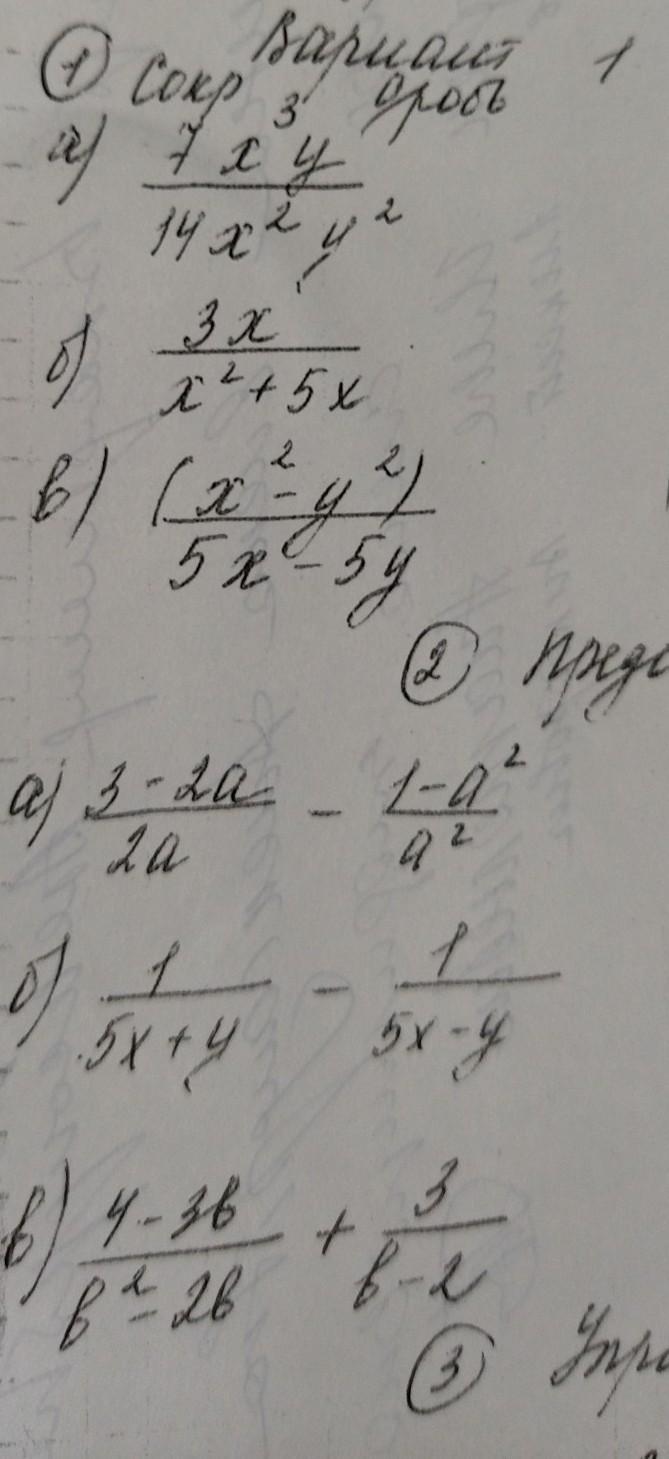 Вариант 1
① Сокр дробь
а) 7x³y / 14x²y²
б) 3x / x²+5x
в) (x²-y²) / 5x-5y
② Предс
а) 3-2a / 2a - 1-a² / a²
б) 1 / 5x+y - 1 / 5x-y
в) 4-3b / b²-2b + 3 / b-2
③ Упро